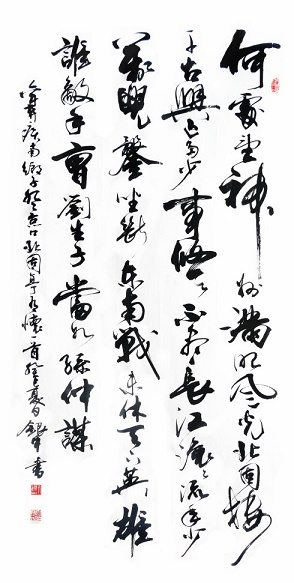 何處望神州滿眼風光北固樓
千古興亡多少事悠悠不盡長江滾滾流年少
萬兜鍪坐斷東南戰未休天下英雄
誰敵手曹劉生子當如孫仲謀
辛棄疾南鄉子登京口北固亭有懷一首夏日銀書